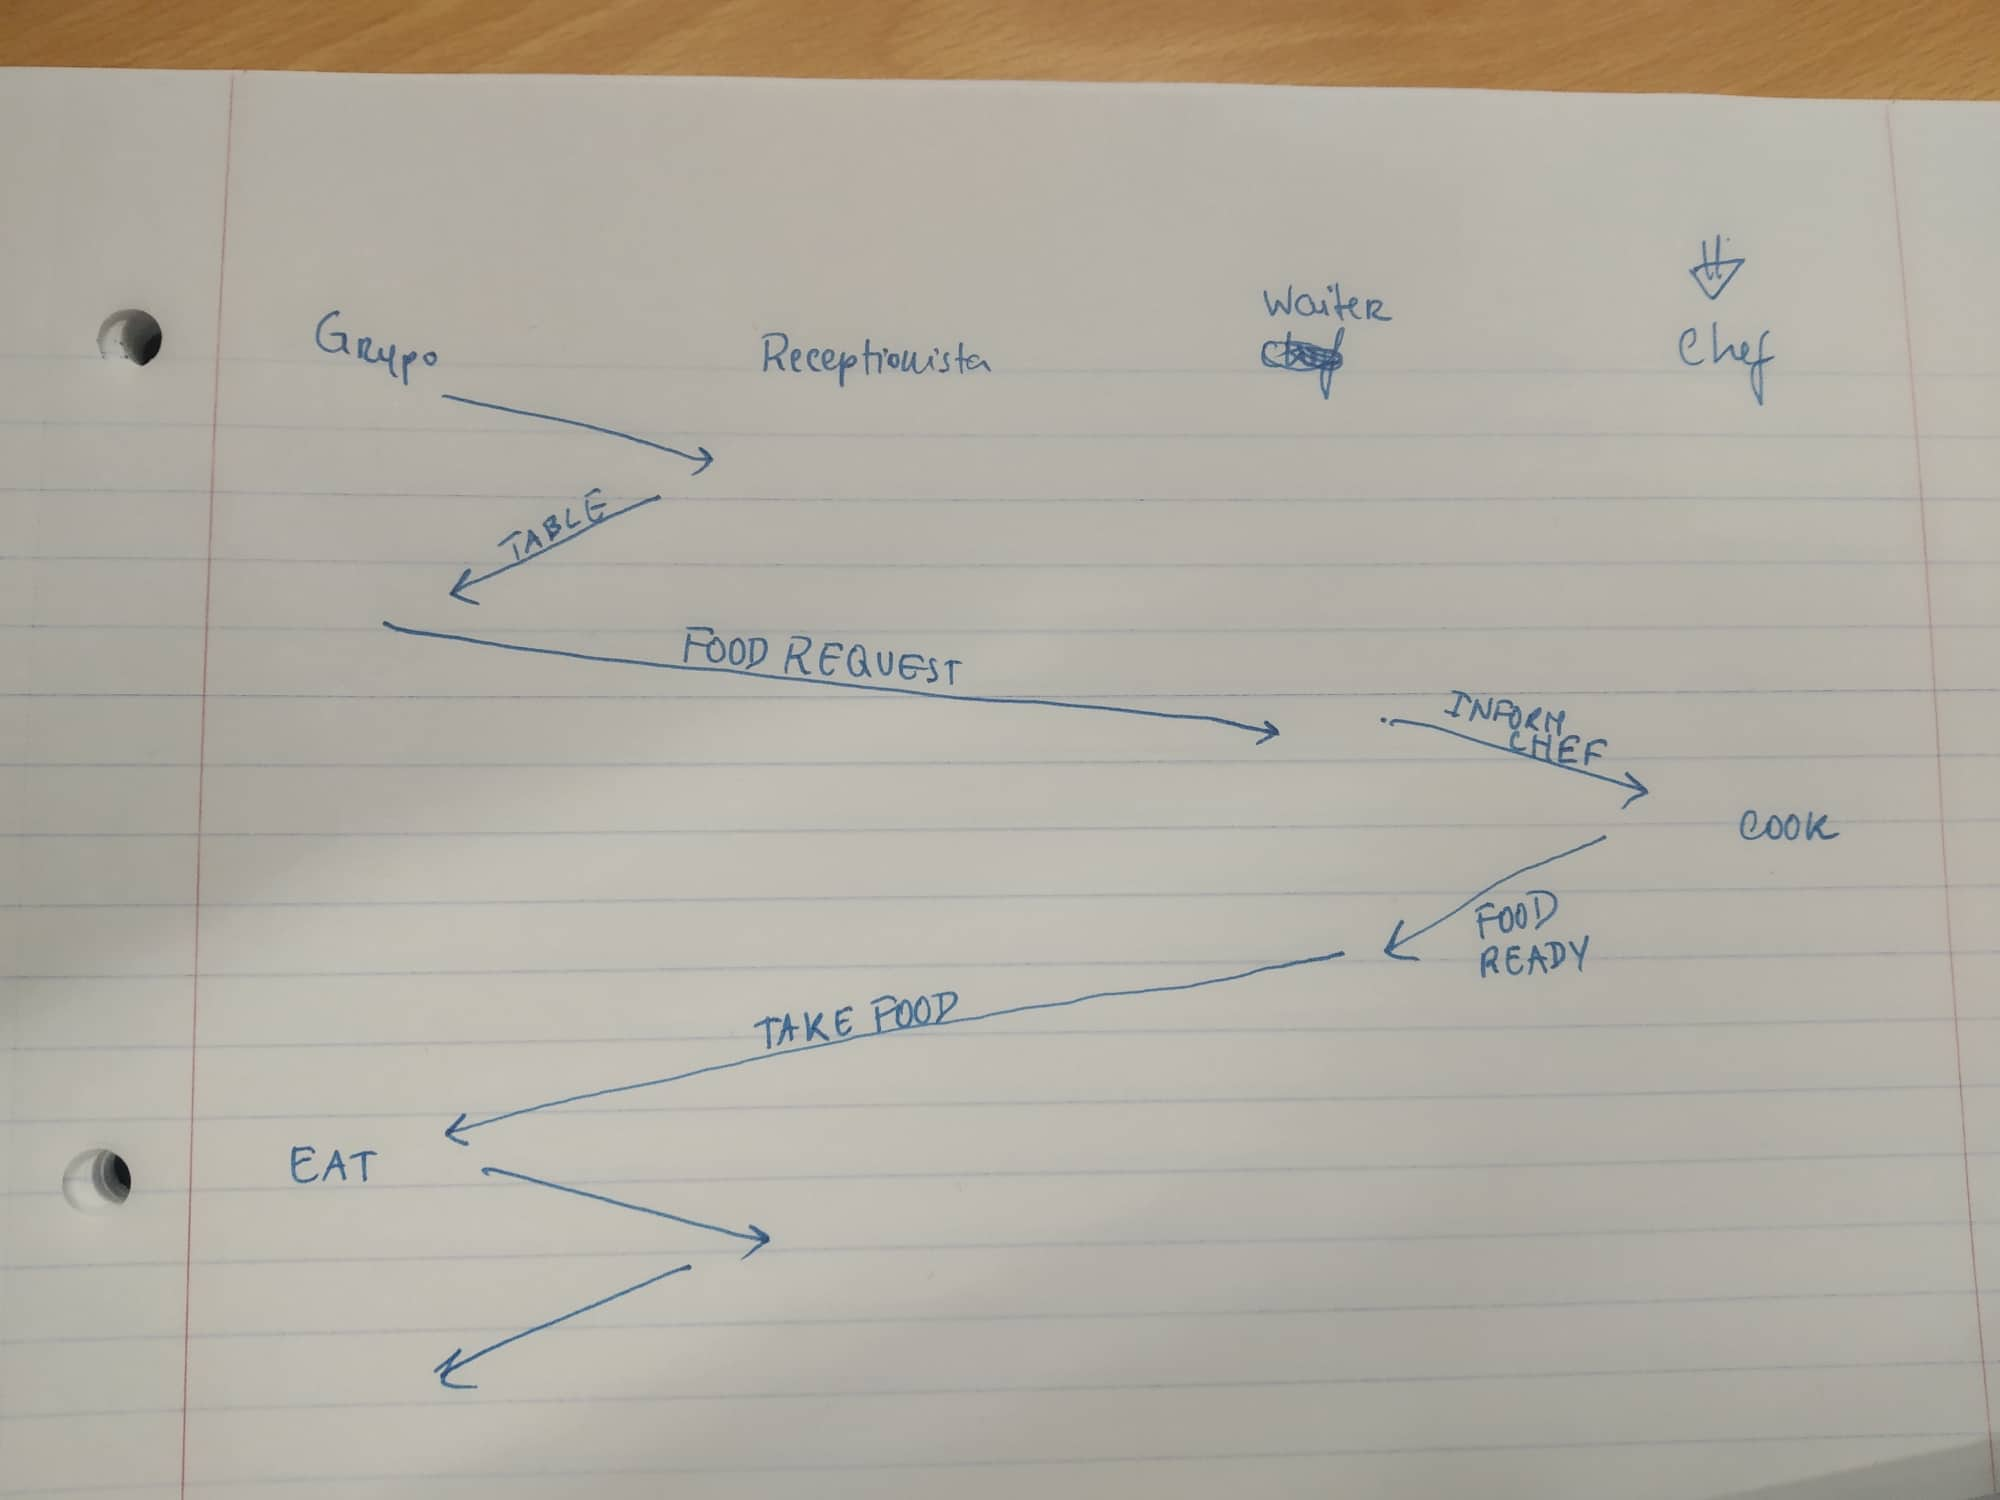 Grupo
Receptionista
Waiter
Chef
TABLE
FOOD REQUEST
INFORM
CHEF
COOK
FOOD
READY
TAKE FOOD
EAT